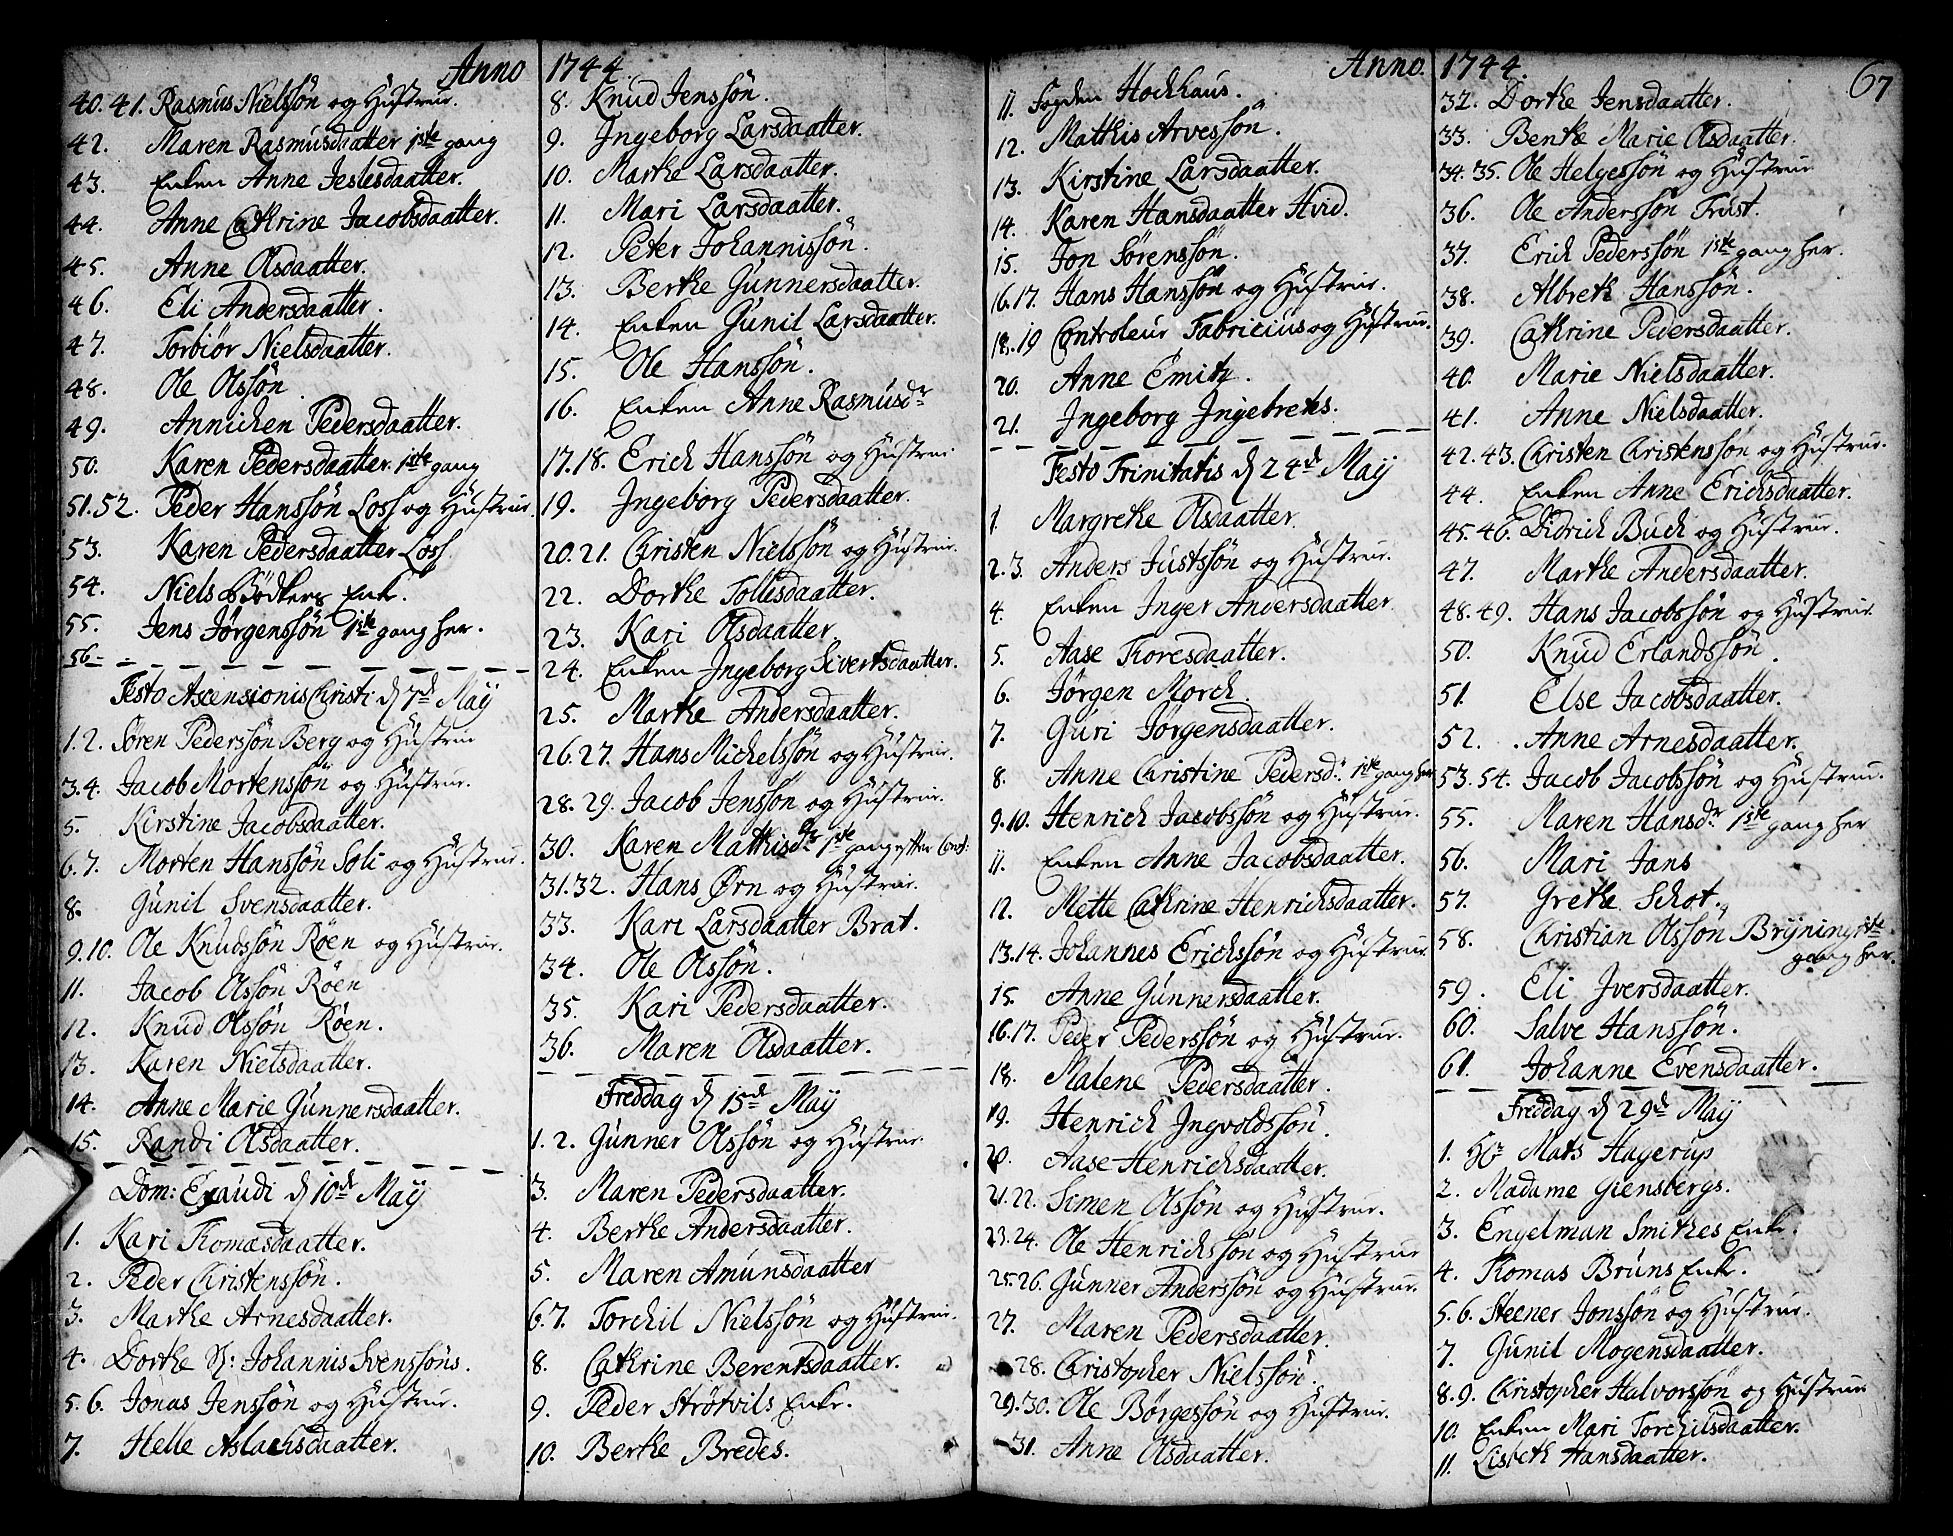 Anno 1744
40. 41. Rasmus Nielssön og Hustrue.
42. Maren Rasmusdaatter 1ste gang
43. Enken Anne Jeslesdaatter.
44. Anne Cathrine Jacobsdaatter.
45. Anne Olsdaatter.
46. Eli Andersdaatter.
47. Torbiör Nielsdaatter.
48. Ole Olssön.
49. Annichen Pedersdaatter.
50. Karen Pedersdaatter. 1ste gang
51. 52. Peder Hanssön Loss og Hustrue.
53. Karen Pedersdaatter Loss
54. Niels Bödkers Enk.
55. Jens Jörgenssön 1ste gang her.
56
Festo Ascensionis Christi d 7d Maÿ
1. 2. Sören Pederssön Berg og Hustrue
3. 4. Jacob Mortenssön og Hustrue.
5. Kirstine Jacobsdaatter.
6. 7. Morten Hanssön Soli og Hustrue.
8. Gunil Svensdaatter.
9. 10. Ole Knudssön Röen og Hustrue.
11. Jacob Olssön Röen
12. Knud Olssön Röen.
13. Karen Nielsdaatter.
14. Anne Marie Gunnersdaatter.
15. Randi Olsdaatter.
Dom: Exaudi d 10d Maÿ
1. Kari Thomasdaatter.
2. Peder Christenssön.
3. Marthe Arnesdaatter.
4. Dorthe Sl: Johannis Svenssöns.
5. 6. Jonas Jenssön og Hustrue.
7. Helle Aslachsdaatter.
8. Knud Jenssön.
9. Jngeborg Larsdaatter.
10. Marthe Larsdaatter.
11. Mari Larsdaatter.
12. Peter Johannissön.
13. Berthe Gunnersdaatter.
14. Enken Gunil Larsdaatter.
15. Ole Hanssön.
16. Enken Anne Rasmusdr
17. 18. Erich Hanssön og Hustrue
19. Jngeborg Pedersdaatter.
20. 21. Christen Nielssön og Hustrue.
22. Dorthe Tollesdaatter.
23. Kari Olsdaatter
24. Enken Jngeborg Sivertsdaatter.
25. Marthe Andersdaatter.
26. 27. Hans Michelssön og Hustrue.
28. 29. Jacob Jenssön og Hustrue.
30. Karen Mathisdr 1ste gang efter Conf:
31. 32. Hans Ørn og Hustrue.
33. Kari Larsdaatter Brat.
34. Ole Olssön.
35. Kari Pedersdaatter.
36. Maren Olsdaatter.
Freddag d 15d Maÿ
1. 2. Gunner Olssön og Hustrue.
3. Maren Pedersdaatter.
4. Berthe Andersdaatter.
5. Maren Amunsdaatter
6. 7. Torchil Nielssön og Hustrue.
8. Cathrine Berentsdaatter.
9. Peder Strötvils Enke.
10. Berthe Bredes.
Anno. 1744. 67
11. Fogden Hockhaus.
12. Matthis Arvessön.
13. Kirstine Larsdaatter.
14. Karen Hansdaatter Hvid.
15. Jon Sörenssön.
16. 17. Hans Hanssön og Hustrue.
18. 19 Controleur Fabricius og Hustrue.
20. Anne Emitz.
21. Jngeborg Jngebreths.
Festo Trinitatis d 24d Maÿ
1. Margrethe Olsdaatter.
2. 3. Anders Justssön og Hustrue.
4. Enken Jnger Andersdaatter
5. Aase Thoresdaatter.
6. Jörgen Morch.
7. Guri Jörgensdaatter.
8. Anne Christine Pedersd: 1ste gang her
9. 10. Henrich Jacobssön og Hustrue.
11. Enken Anne Jacobsdaatter.
12. Mette Cathrine Henrichsdaatter.
13. 14. Johannes Erichssön og Hustrue.
15. Anne Gunnersdaatter.
16. 17. Peder Pederssön og Hustrue.
18. Malene Pedersdaatter.
19. Henrich Jngvoldssön.
20. Aase Henrichsdaatter.
21. 22. Simen Olssön og Hustrue.
23. 24. Ole Henrichssön og Hustrue
25. 26. Gunner Anderssön og Hustrue.
27. Maren Pedersdaatter.
28. Christopher Nielssön.
29. 30. Ole Börgessön og Hustrue.
31. Anne Olsdaatter.
32. Dorthe Jensdaatter.
33. Benthe Marie Olsdaatter.
34. 35. Ole Helgessön og Hustrue
36. Ole Anderssön Trust.
37. Erich Pederssön 1ste gang her.
38. Albreth Hanssön.
39. Cathrine Pedersdaatter.
40. Marie Nielsdaatter.
41. Anne Nielsdaatter.
42. 43. Christen Christenssön og Hustrue.
44. Enken Anne Erichsdaatter.
45. 46. Didrich Buch og Hustrue.
47. Marthe Andersdaatter.
48. 49. Hans Jacobssön og Hustrue.
50. Knud Erlandssön.
51. Else Jacobsdaatter.
52. Anne Arnesdaatter.
53. 54. Jacob Jacobssön og Hustrue.
55. Maren Hansdr 1ste gang her
56. Mari Jans
57. Grethe Schot.
58. Christian Olssön Brÿning 1ste
gang her.
59. Eli Jversdaatter.
60. Salve Hanssön.
61. Johanne Evensdaatter.
Freddag d 29d Maÿ
1. Hr Mats Hagerup
2. Madame Giensbergs.
3. Engelman Smithes Enke.
4. Thomas Bruns Enke.
5. 6. Steener Jonssön og Hustrue.
7. Gunil Mogensdaatter.
8. 9. Christopher Halvorssön og Hustrue
10. Enken Mari Torchilsdaatter.
11. Lisbeth Hansdaatter.